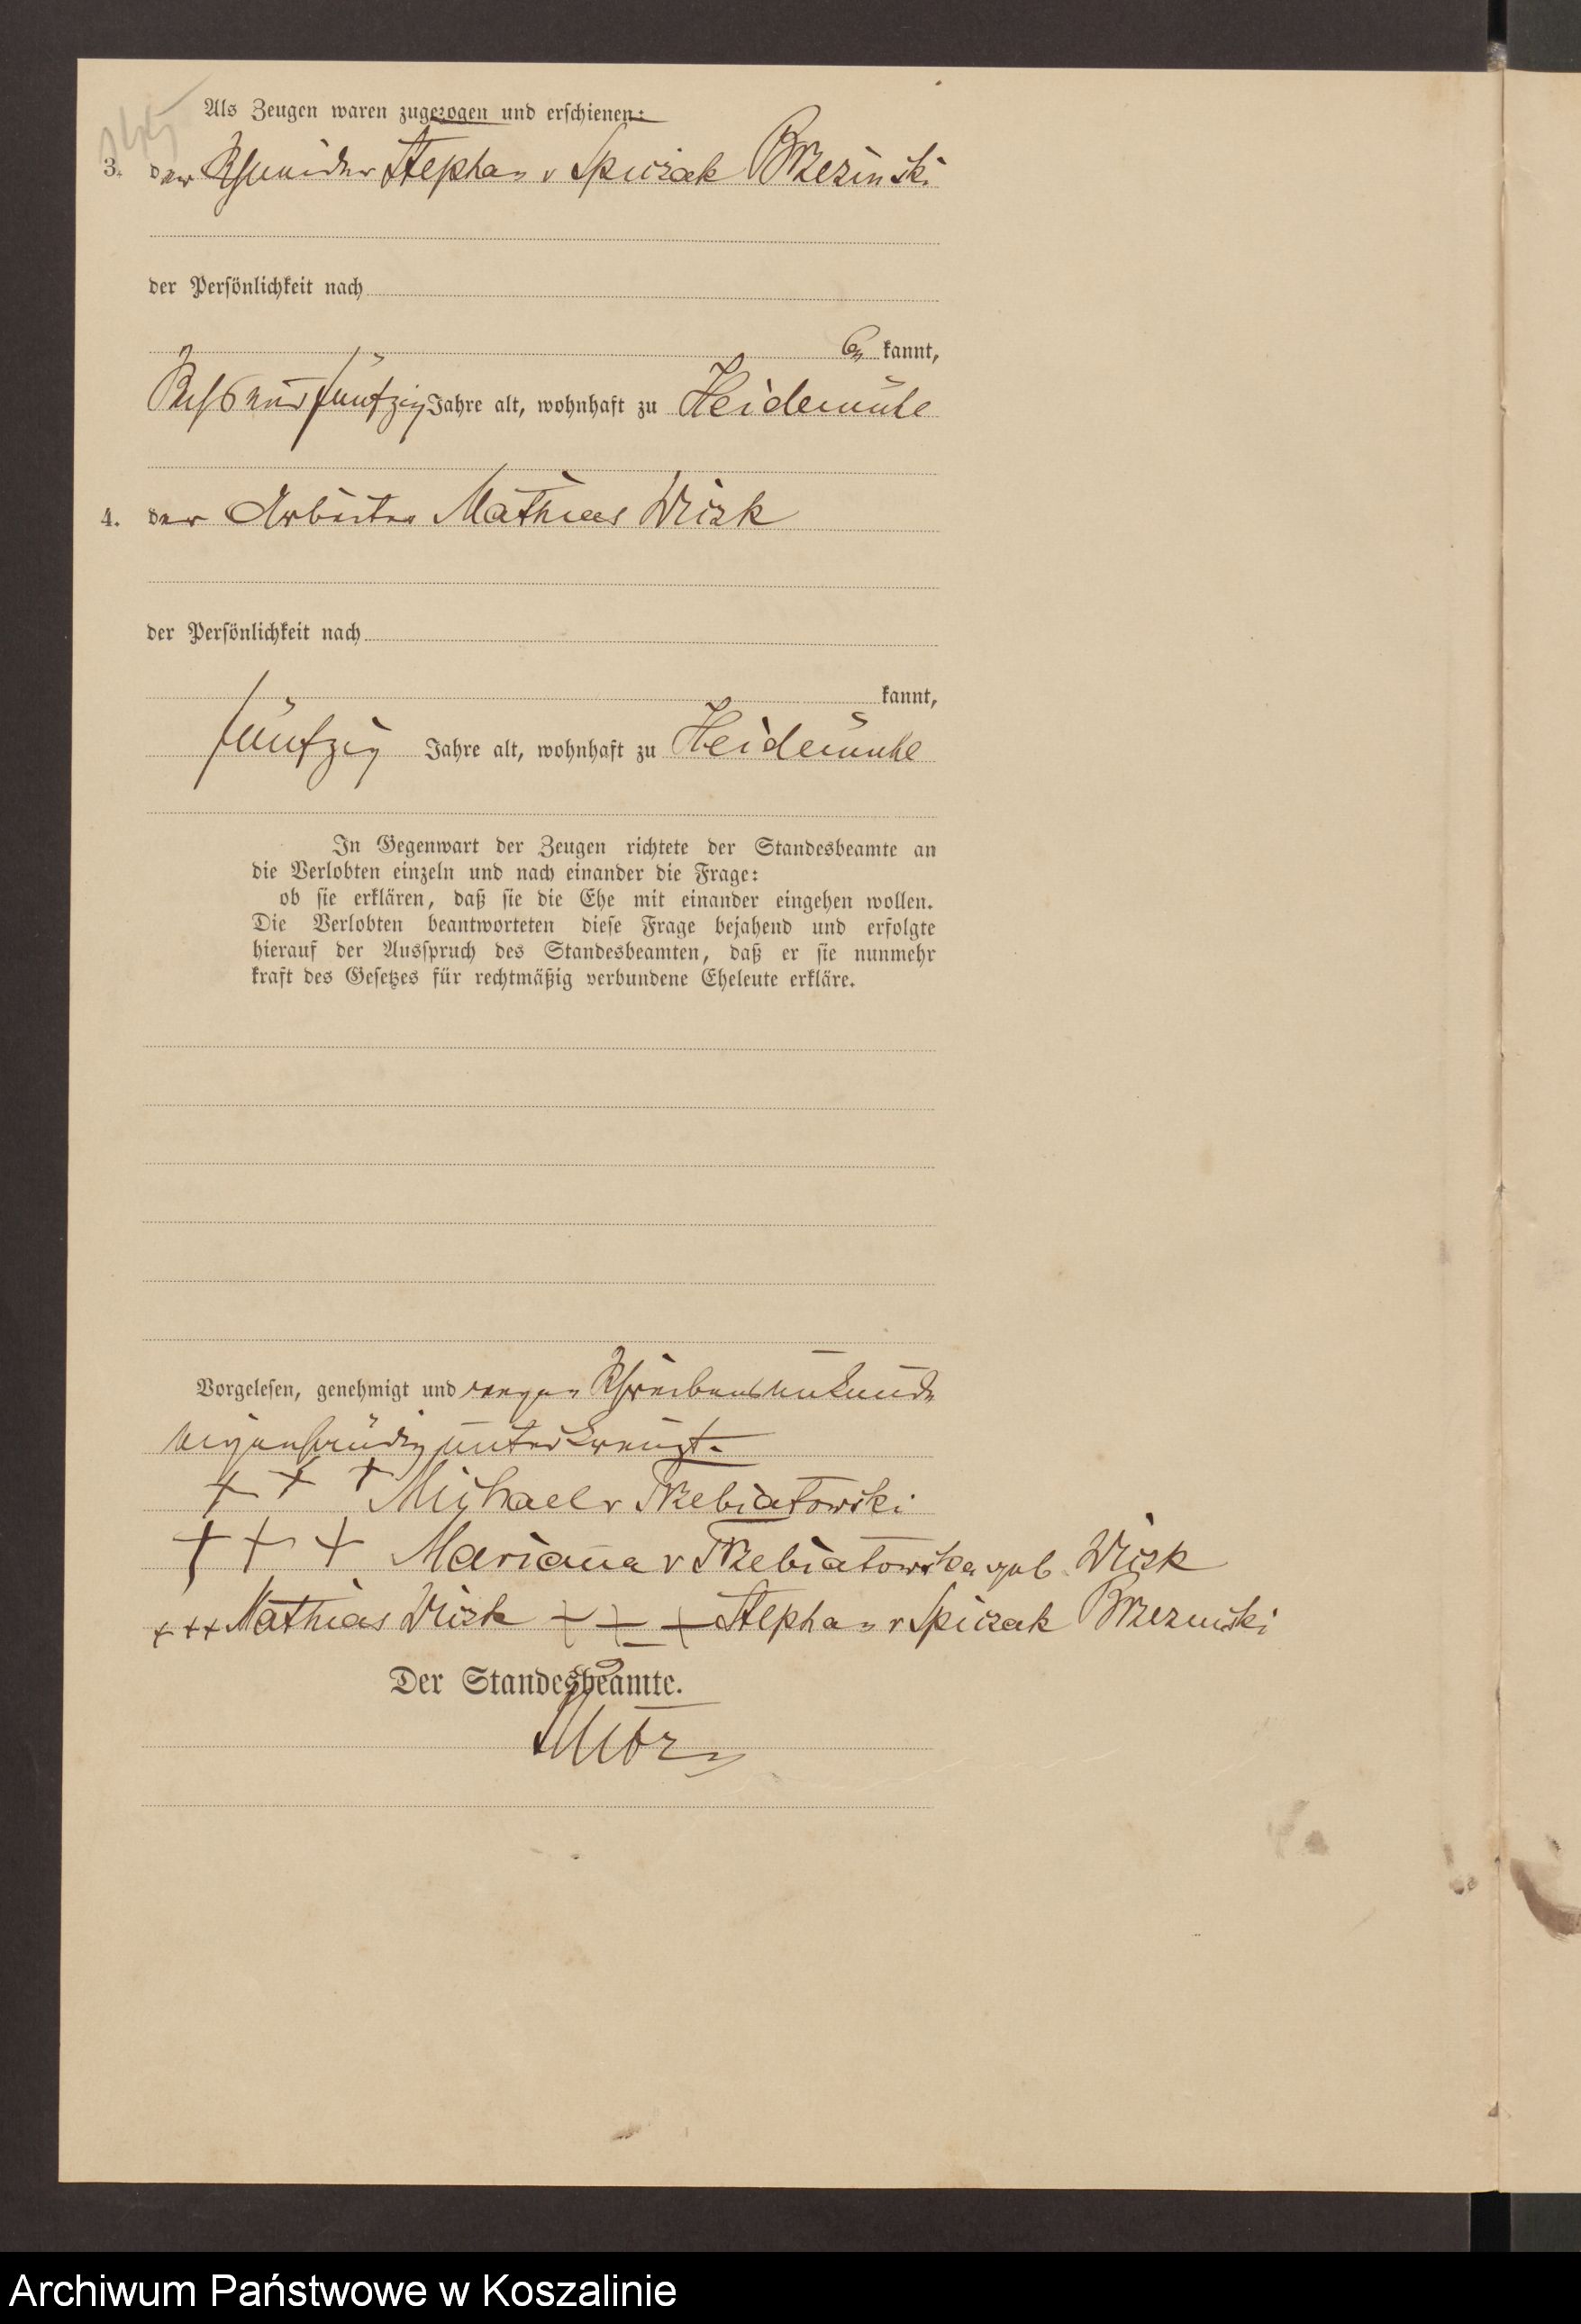 Als Zeugen waren zugezogen und erschienen:
3. der Schneider Stephan v Spiczak Brzezinski
der Persönlichkeit nach
be kannt,
sechsundfünfzig Jahre alt, wohnhaft zu Heidemühl
4. der Arbeiter Mathias Wirk
der Persönlichkeit nach
kannt,
fünfzig Jahre alt, wohnhaft zu Heidemühl
In Gegenwart der Zeugen richtete der Standesbeamte an
die Verlobten einzeln und nach einander die Frage:
ob sie erklären, daß sie die Ehe mit einander eingehen wollen.
Die Verlobten beantworteten diese Frage bejahend und erfolgte
hierauf der Ausspruch des Standesbeamten, daß er sie nunmehr
kraft des Gesetzes für rechtmäßig verbundene Eheleute erkläre.
Vorgelesen, genehmigt und wegen Schreibensunkunde
eigenhändig unterkreuzt.
+ + + Michael v Trzebiatowski
+ + + Mariana v Trzebiatowska geb. Wirk
+++ Mathias Wirk + + + Stephan v Spiczak Brzezinski
Der Standesbeamte.
Archiwum Państwowe w Koszalinie